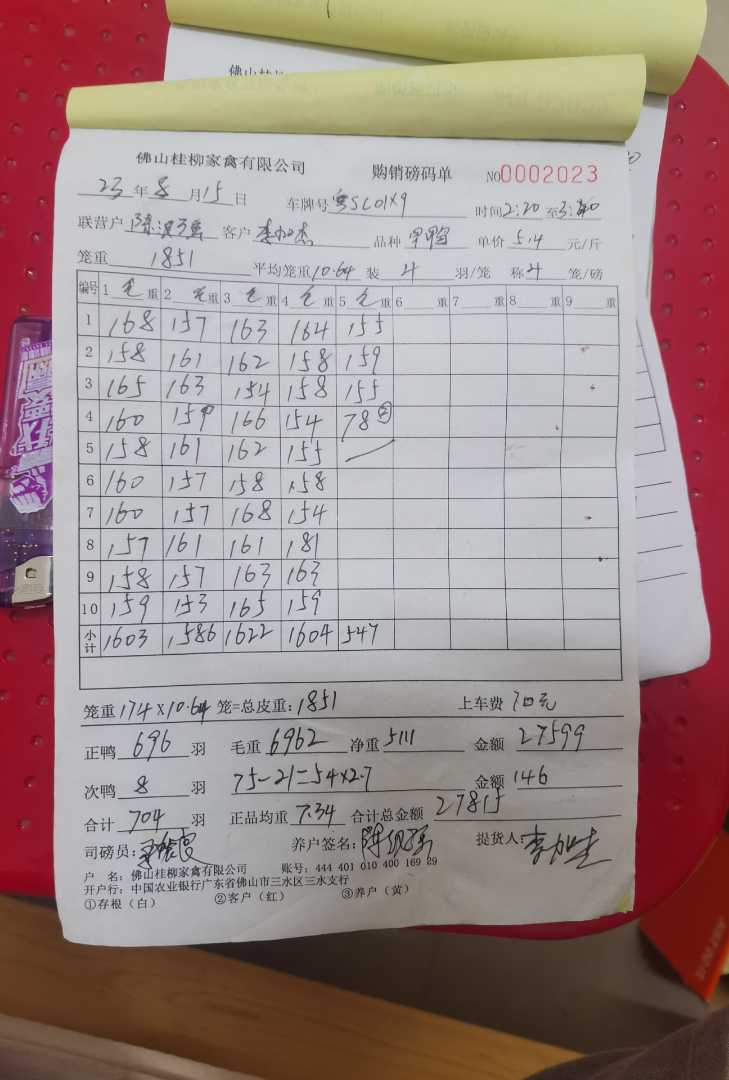 佛山桂柳家禽有限公司 购销磅码单 NO0002023
23年8月15日 车牌号 粤SC01X9 时间2:20至3:40
联营户 客户 品种 单价 5.4 元/斤
笼重 1851 平均笼重10.64 装 4 羽/笼 称4 笼/磅
编号 1 毛重 2 毛重 3 毛重 4 毛重 5 毛重 6 重 7 重 8 重 9 重
1 168 157 163 164 155
2 158 161 162 158 159
3 165 163 154 158 155
4 160 159 166 154 78②
5 158 161 162 155
6 160 157 158 158
7 160 157 168 154
8 157 161 161 181
9 158 157 163 163
10 159 153 165 159
小计 1603 1586 1622 1604 547
笼重174×10.64笼=总皮重:1851 上车费 70元
正鸭 696 羽 毛重 6962 净重 5111 金额 27599
次鸭 8 羽 75-21=54×2.7 金额 146
合计 704 羽 正品均重 7.34 合计总金额 27815
司磅员: 养户签名: 提货人:
户 名:佛山桂柳家禽有限公司 账号:444 401 010 400 169 29
开户行:中国农业银行广东省佛山市三水区三水支行
①存根(白) ②客户(红) ③养户(黄)